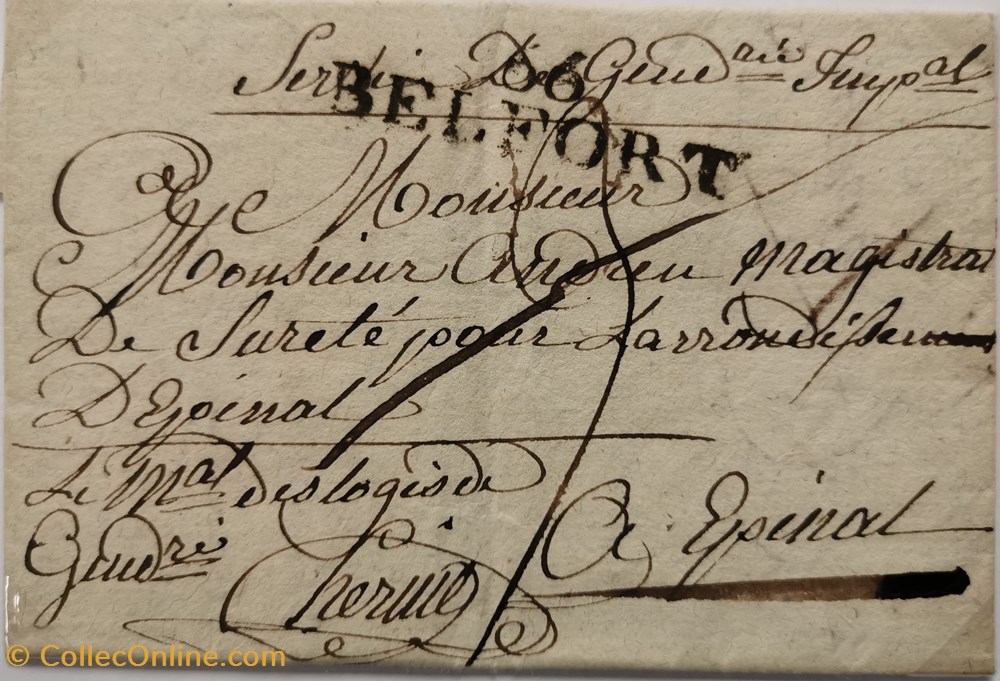 Service De Gendrie Impal
66
BELFORT
A Monsieur
Monsieur Andreu magistrat
De Sureté pour Larrondissement
D'Epinal
Le Mal deslogis de
Gendrie
A Epinal
© CollecOnline.com